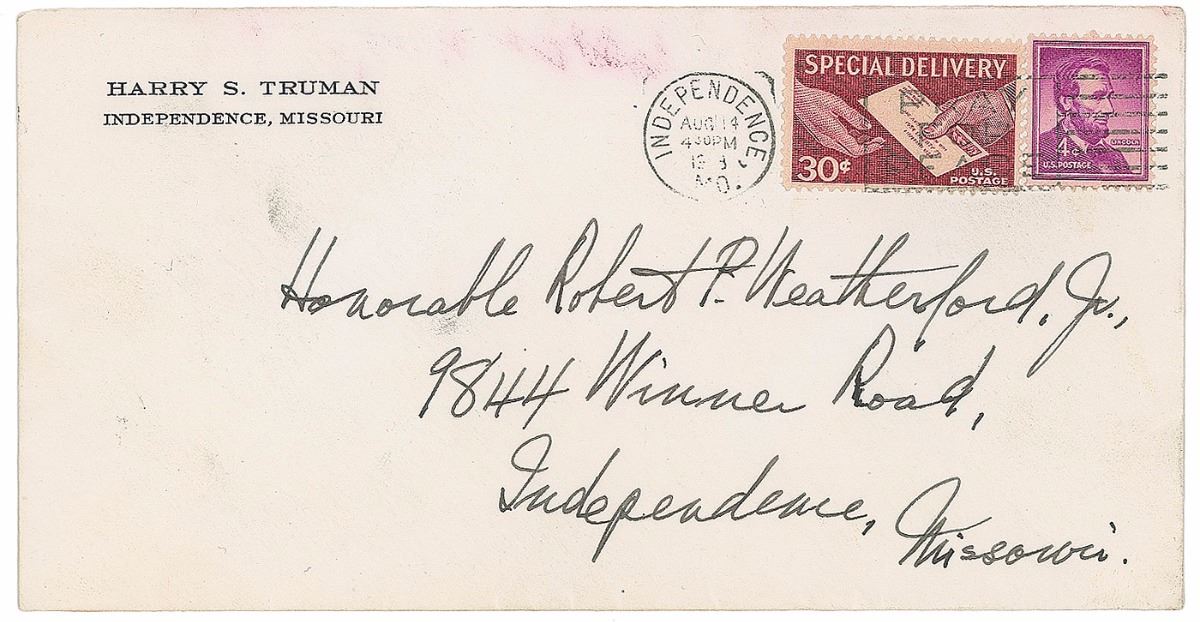 HARRY S. TRUMAN
INDEPENDENCE, MISSOURI
INDEPENDENCE,
AUG 14
PM
MO.
SPECIAL DELIVERY
30¢
U.S.
POSTAGE
4¢
LINCOLN
U.S. POSTAGE
Honorable Robert P. Weatherford, Jr.,
9844 Winner Road,
Independence, Missouri.